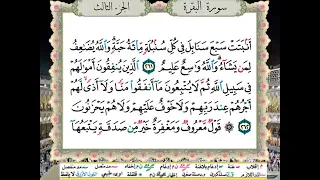 سورة البقرة الجزء الثالث
أَنۢبَتَتْ سَبْعَ سَنَابِلَ فِى كُلِّ سُنۢبُلَةٍ مِّا۟ئَةُ حَبَّةٍ وَٱللَّهُ يُضَٰعِفُ
لِمَن يَشَآءُ وَٱللَّهُ وَٰسِعٌ عَلِيمٌ ٢٦١ ٱلَّذِينَ يُنفِقُونَ أَمْوَٰلَهُمْ
فِى سَبِيلِ ٱللَّهِ ثُمَّ لَا يُتْبِعُونَ مَآ أَنفَقُوا۟ مَنًّا وَلَآ أَذًى لَّهُمْ
أَجْرُهُمْ عِندَ رَبِّهِمْ وَلَا خَوْفٌ عَلَيْهِمْ وَلَا هُمْ يَحْزَنُونَ
٢٦٢ قَوْلٌ مَّعْرُوفٌ وَمَغْفِرَةٌ خَيْرٌ مِّن صَدَقَةٍ يَتْبَعُهَآ